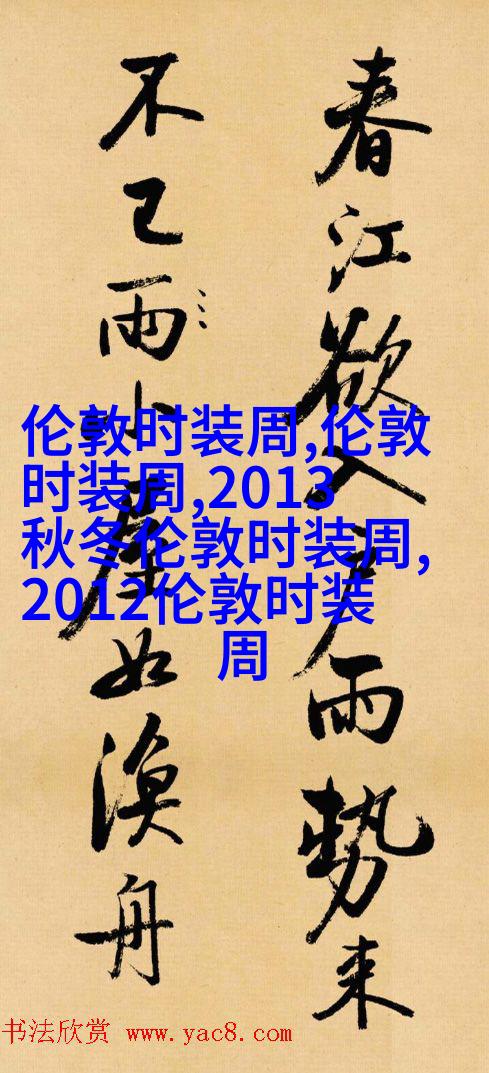 春江欲入戶雨勢來
不已雨小屋如漁舟
伦敦时装周,伦敦
时装周,2013
秋冬伦敦时装周,
2012伦敦时装
周
书法欣赏 www.yac8.com